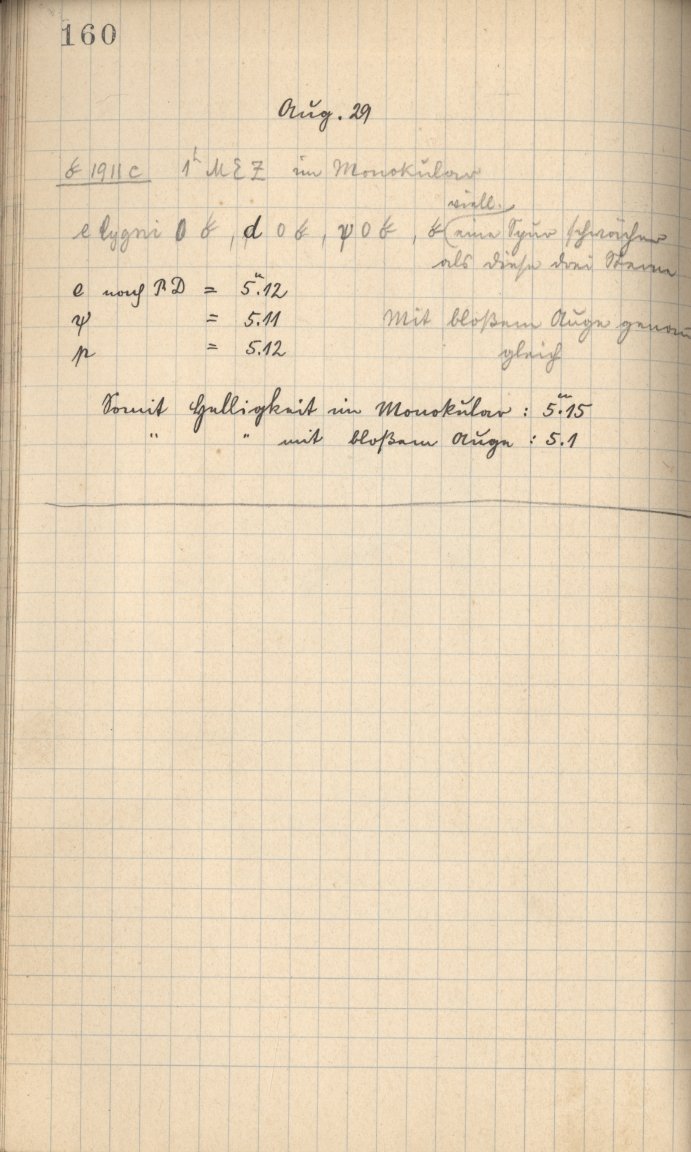 160
Aug. 29
☄ 1911 c 1ʰ MEZ im Monokular
viell.
e Cygni 0 ☄, d 0 ☄, ψ 0 ☄, ☄ (eine Spur schwächer
als diese drei Sterne
e nach PD = 5ᵐ.12
ψ = 5.11 Mit bloßem Auge genau
p = 5.12 gleich
Somit Helligkeit im Monokular : 5ᵐ.15
" " mit bloßem Auge : 5.1